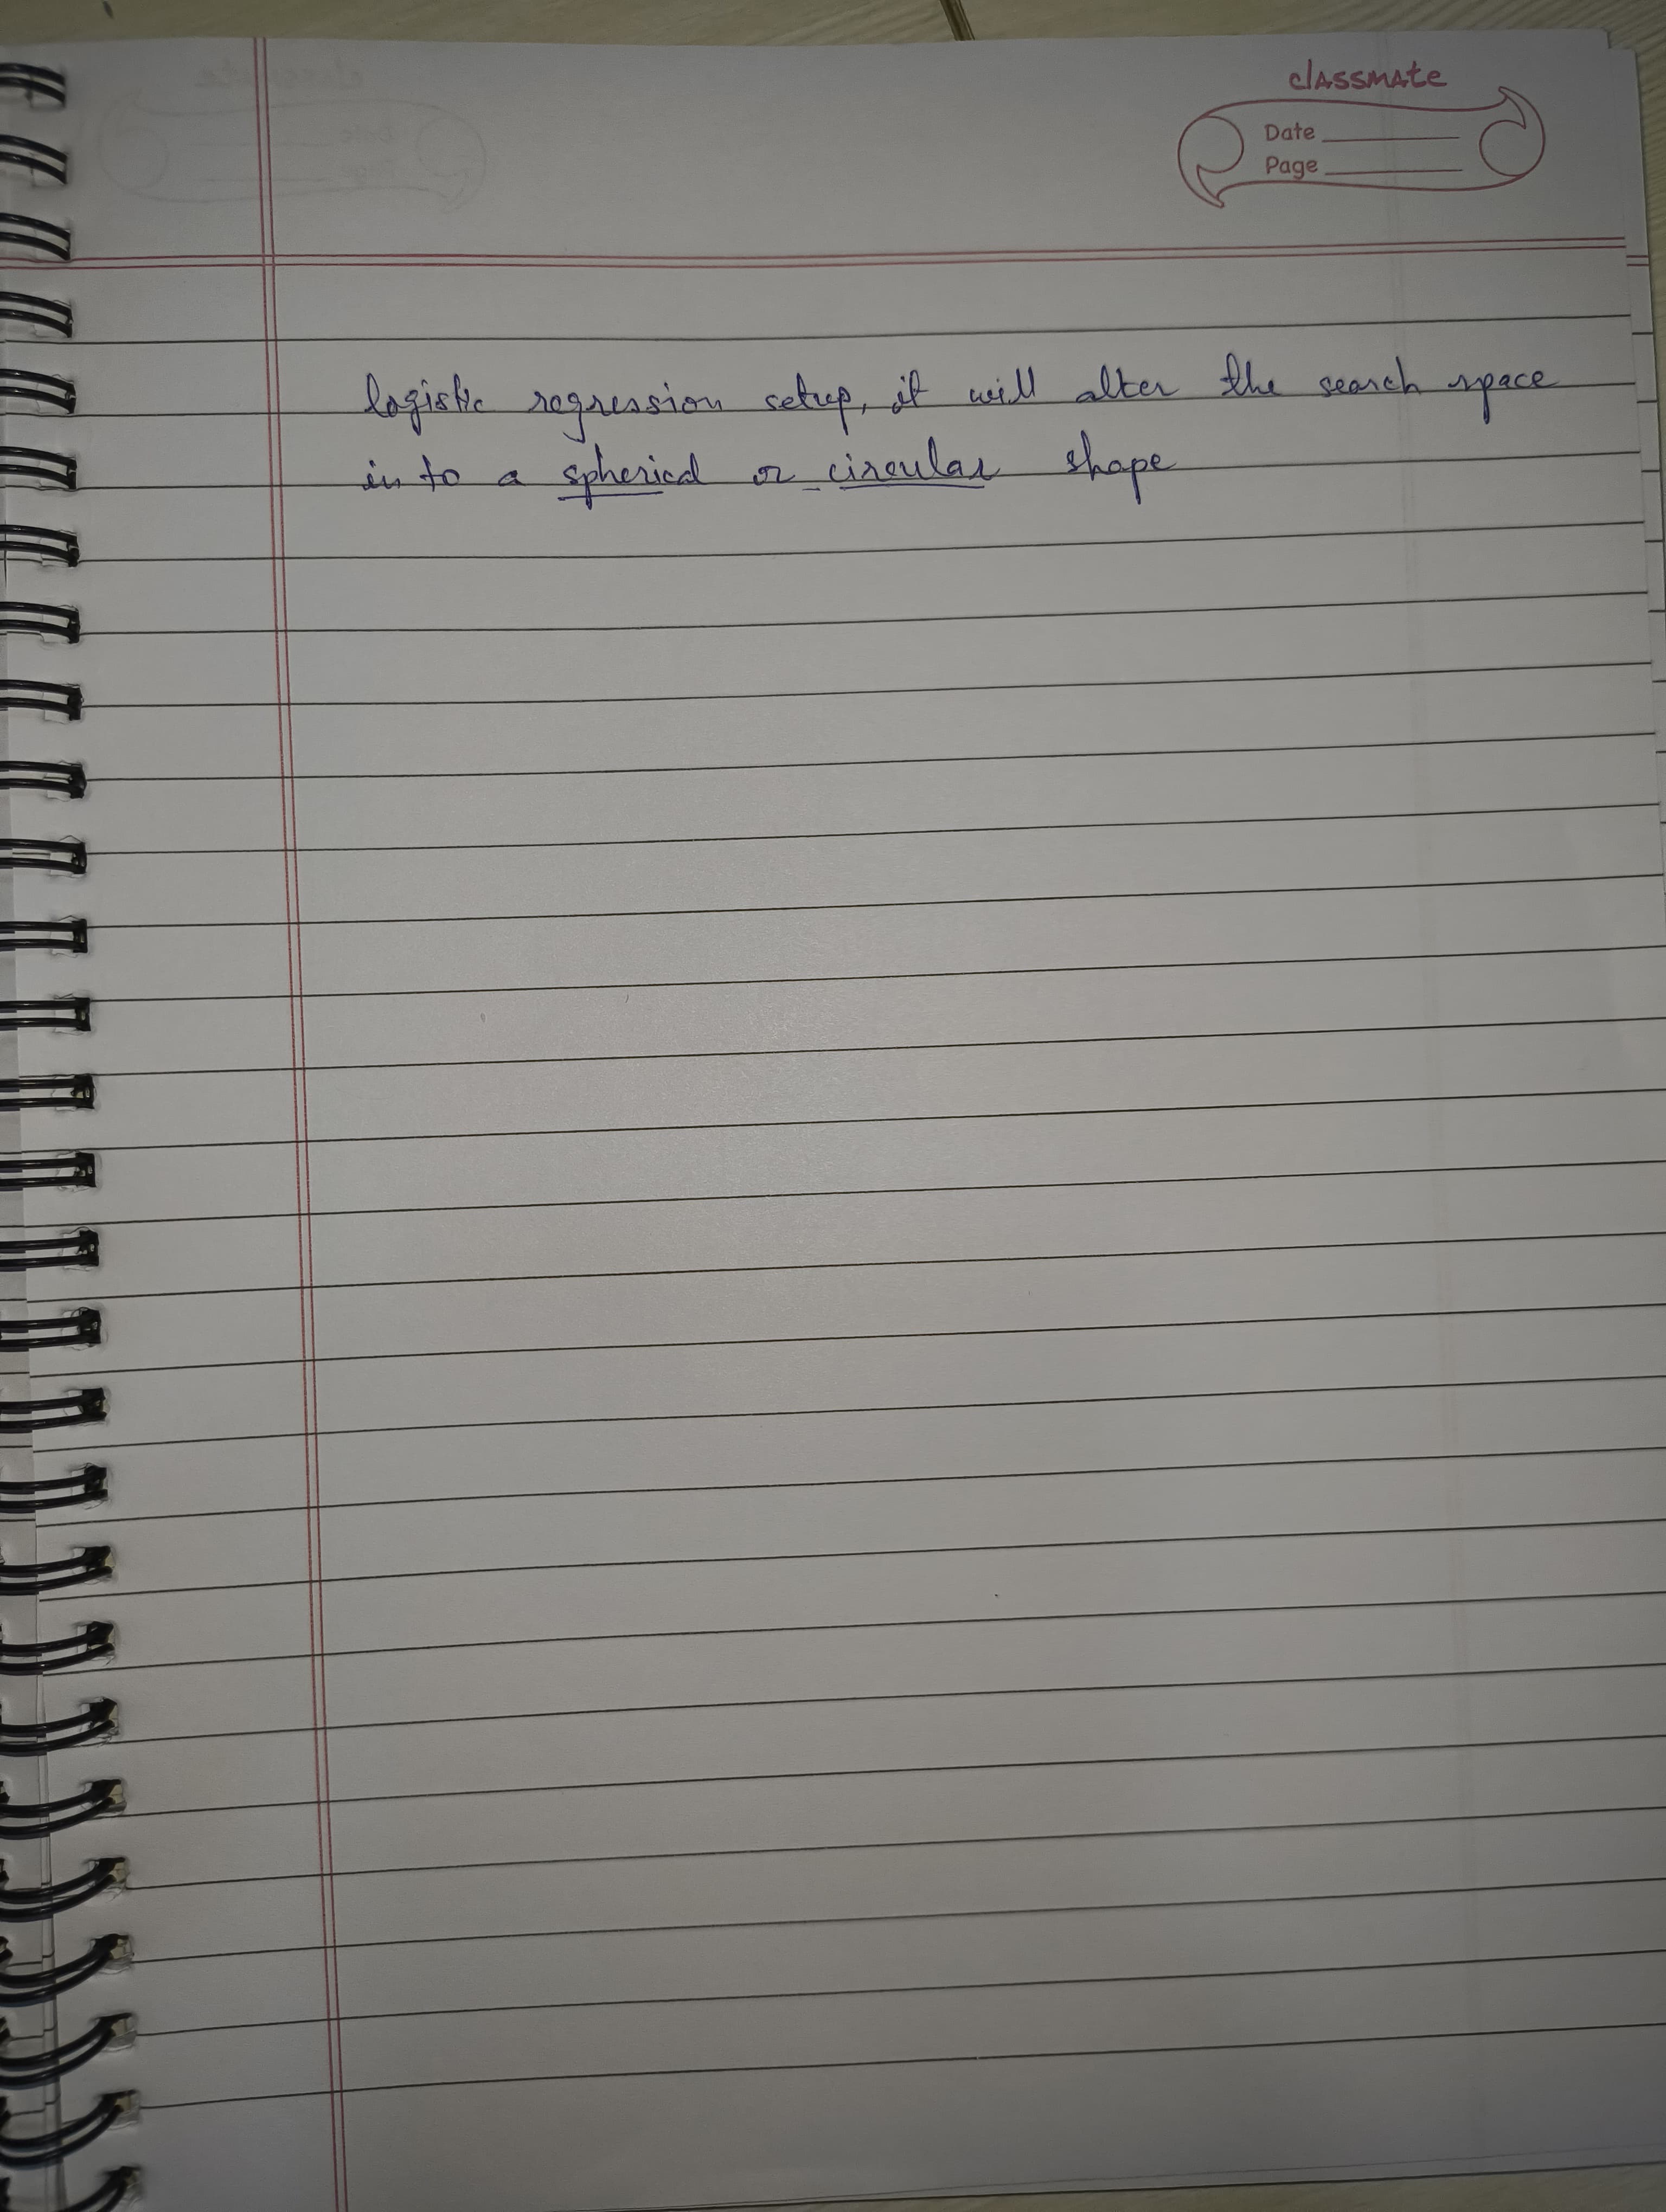 classmate
Date
Page
logistic regression setup, it will alter the search space
in to a spherical or circular shape